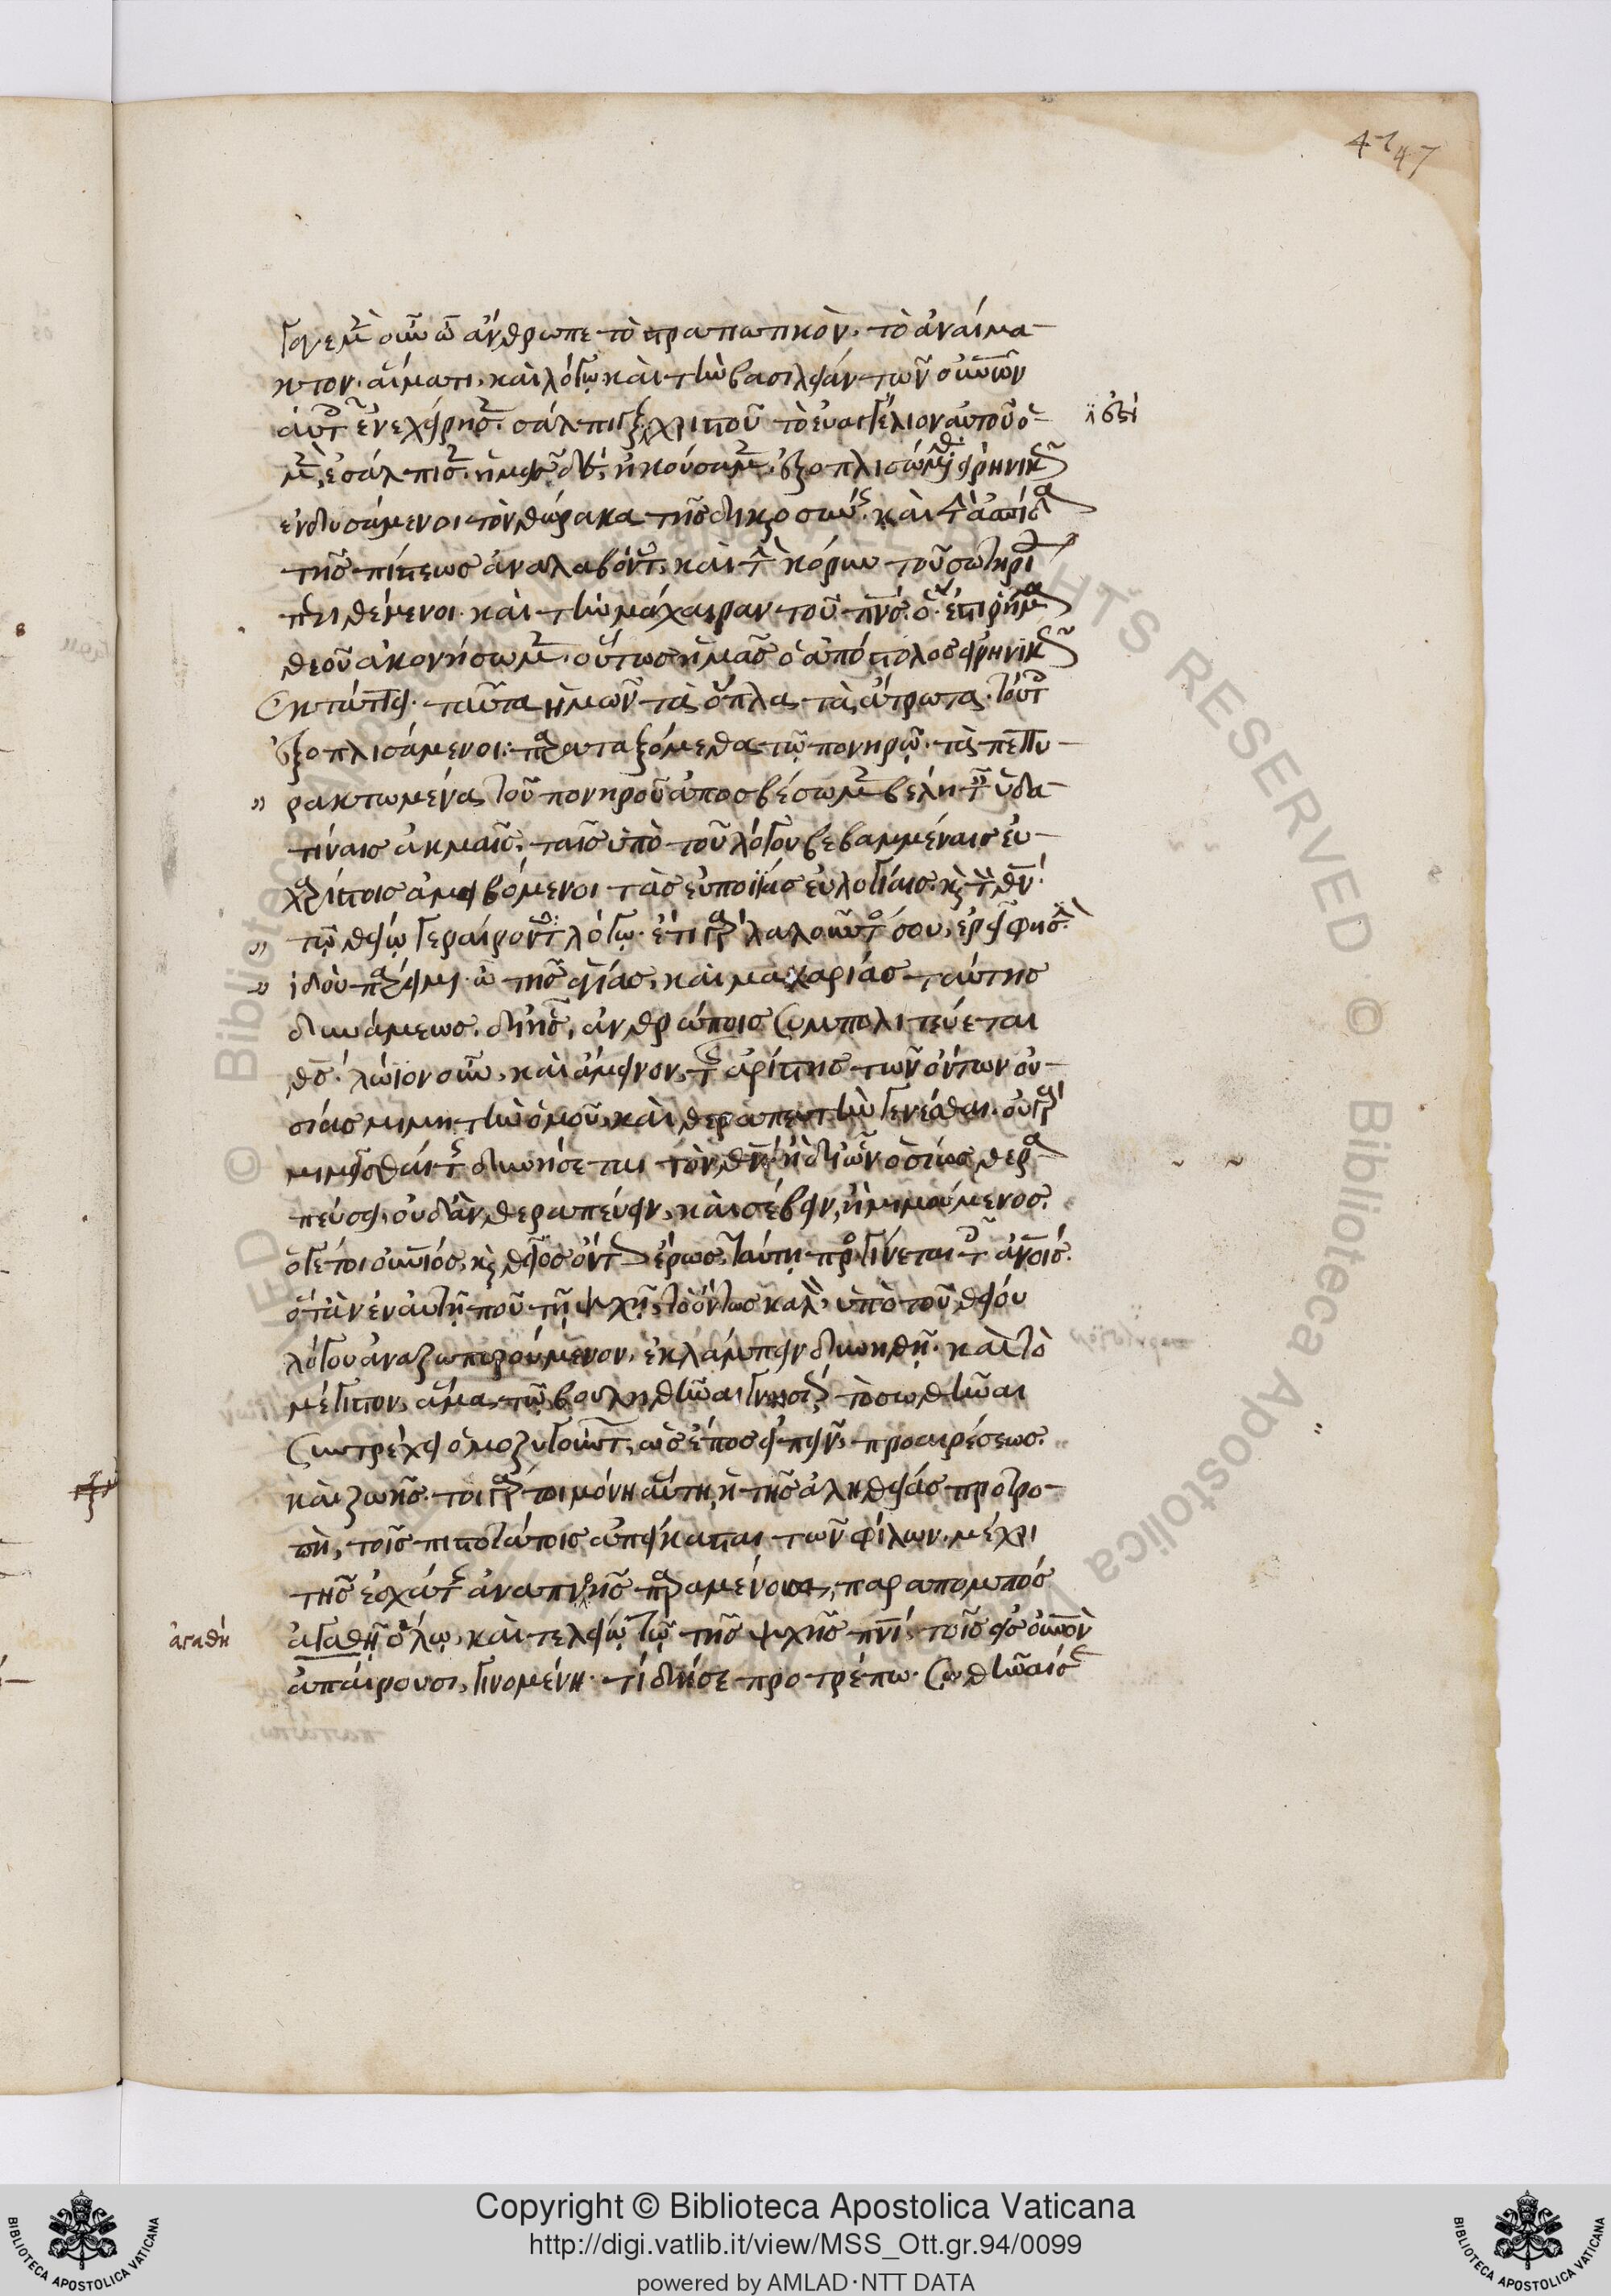 47 47
γαγεν οὖν ὦ ἄνθρωπε τὸ στρατιωτικὸν· τὸ ἀναίμα-
κτον. αἵματι, καὶ λόγω, καὶ τὴν βασιλείαν τῶν οὐνῶν
αὐτοῖς ἐνεχείρησεν. σάλπιγξ χριστοῦ τὸ εὐαγγέλιον αὐτοῦ ὁ
μὲν, ἐσάλπισεν. ἡμεῖς δὲ, ἠκούσαμεν. ἐξοπλισώμεθα εἰρηνικῶς
ἐνδυσάμενοι τὸν θώρακα τῆς δικαιοσύνης. καὶ τὴν ἀσπίδα
τῆς πίστεως ἀναλαβόντες, καὶ τὴν κόρυν τοῦ σωτηρίου
περιθέμενοι. καὶ τὴν μάχαιραν τοῦ πνς. ὅ ἐστι ῥῆμα
θεοῦ ἀκονήσωμεν. οὕτως ἡμᾶς ὁ ἀπόστολος εἰρηνικῶς
ἐκτάττει. ταῦτα ἡμῶν τὰ ὅπλα τὰ ἄτρωτα. τούτοις
ἐξοπλισάμενοι. παραταξόμεθα τῷ πονηρῷ. τὰ πεπυ-
ρακτωμένα τοῦ πονηροῦ ἀποσβέσωμεν βέλη τοῖς ὑδα-
τίναις ἀκμαῖς, ταῖς ὑπὸ τοῦ λόγου βεβαμμέναις εὐ-
χαρίστοις ἀμειβόμενοι τὰς εὐποιΐας εὐλογίαις. καὶ τὸν θν.
τῷ θείῳ γεραίροντες λόγω. ἔτι γὰρ λαλοῦντός σου, ἐρεῖ φησὶ.
ἰδοὺ πάρειμι. ὢ τῆς ἁγίας, καὶ μακαρίας ταύτης
δυνάμεως. δι' ἧς, ἀνθρώποις συμπολιτεύεται
θς. λώϊον οὖν, καὶ ἄμεινον, τῆς ἀρίστης τῶν ὄντων οὐ-
σίας μιμητὴν ὁμοῦ, καὶ θεραπευτὴν γενέσθαι. οὐ γὰρ
μιμεῖσθαί τις δυνήσεται τὸν θν. ἢ δι' ὧν ὁσίως θερα
πεύσει. οὐδ' ἂν θεραπεύειν, καὶ σέβειν, ἢ μιμούμενος.
ὅ γέ τοι οὐνιος, καὶ θεῖος ὄντως ἔρως, ταύτη προσγίνεται τοῖς ἀνοις.
ὅταν ἐν αὐτῇ που τῇ ψυχῇ, τὸ ὄντως καλὸν, ὑπὸ τοῦ θείου
λόγου ἀναζωπυρούμενον, ἐκλάμπειν δυνηθῇ. καὶ τὸ
μέγιστον, ἅμα τῷ βουληθῆναι γνησίως, τὸ σωθῆναι
συντρέχει ὁμοζυγούντων, ὡς ἔπος εἰπεῖν, προαιρέσεως.
καὶ ζωῆς. τοιγάρτοι μόνη αὕτη, ἡ τῆς ἀληθείας προτρο-
πὴ, τοῖς πιστοτάτοις ἀπείκασται τῶν φίλων. μέχρι
τῆς ἐσχάτης ἀναπνοῆς παραμένουσα, παραπομπός
ἀγαθῇ ὅλῳ, καὶ τελείῳ τῷ τῆς ψυχῆς πνι, τοῖς εἰς οὐνὸν
ἀπαίρουσι, γινομένη. τί δή σε προτρέπω. σωθῆναί σε
ἀγαθὴ
Copyright © Biblioteca Apostolica Vaticana
http://digi.vatlib.it/view/MSS_Ott.gr.94/0099
powered by AMLAD·NTT DATA